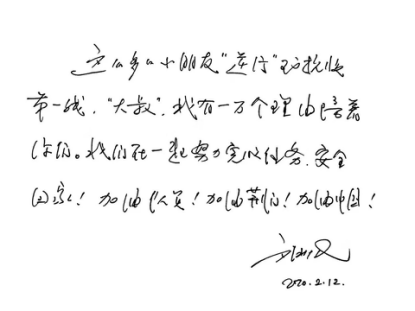 这么多小朋友“逆行”到抗疫
第一线，“大叔”我有一万个理由陪着
你们。我们在一起努力完成任务、安全
回家！加油队员！加油荆门！加油中国！
2020.2.12.